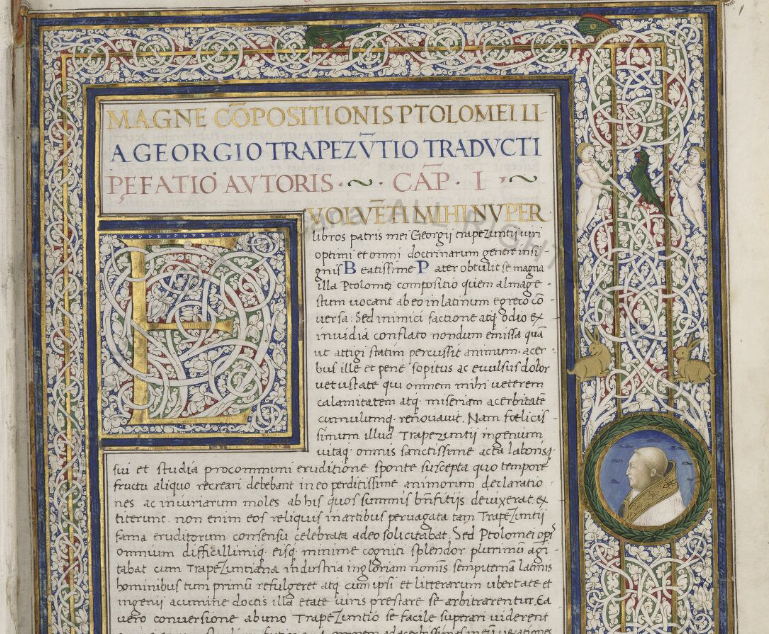 MAGNE CŌPOSITIONIS PTOLOMEI LI-
A GEORGIO TRAPEZV̄TIO TRADVCTI
PEFATIO AVTORIS · ~ · CAP̄ · I · ~
EVOLVĒTI MIHI NVPER
libros patris mei Georgii trapezuntii uiri
optimi et omni doctrinarum genere insi
gnis Beatissime Pater obtulit se magna
illa Ptolomei compositio quem almage
stum uocant ab eo in latinum egregie cō
uersa. Sed inimici factione atq odio ex
inuidia conflato nondum emissa quā
ut attigi statim percussit animum acer
bus ille et pene sopitus ac euulsus dolor
uetustate qui omnem mihi ueterem
calamitatem atq miseriam acerbitate
cumulumq renouauit. Nam fœlicis
simum illud Trapezuntii ingenium
uitaq omnis sanctissime acta laboris
sui et studia procommuni eruditione sponte suscepta quo tempore
fructu aliquo recreari debebant in eo perditissime animorum declaratio
nes ac inuriarum moles ab his quos summis bn̄fitiis deuixerat ex
titerunt. non enim eos reliquis inartibus peruagata tam Trapezuntii
fama eruditorum consensu celebrata adeo solicitabat. Sed Ptolomei opꝰ
omnium difficillimūq eisq minime cogniti splendor plurimū agi
tabat cum Trapezuntiana industria ingloriam nominis sempiternā latinis
hominibus tum primū refulgeret atq cum ipsi et litterarum ubertate et
ingenii acumine doctis illa etate uiris prestare se arbitrarentur. Ea
uero conuersione ab uno Trapezuntio se facile superari uiderent